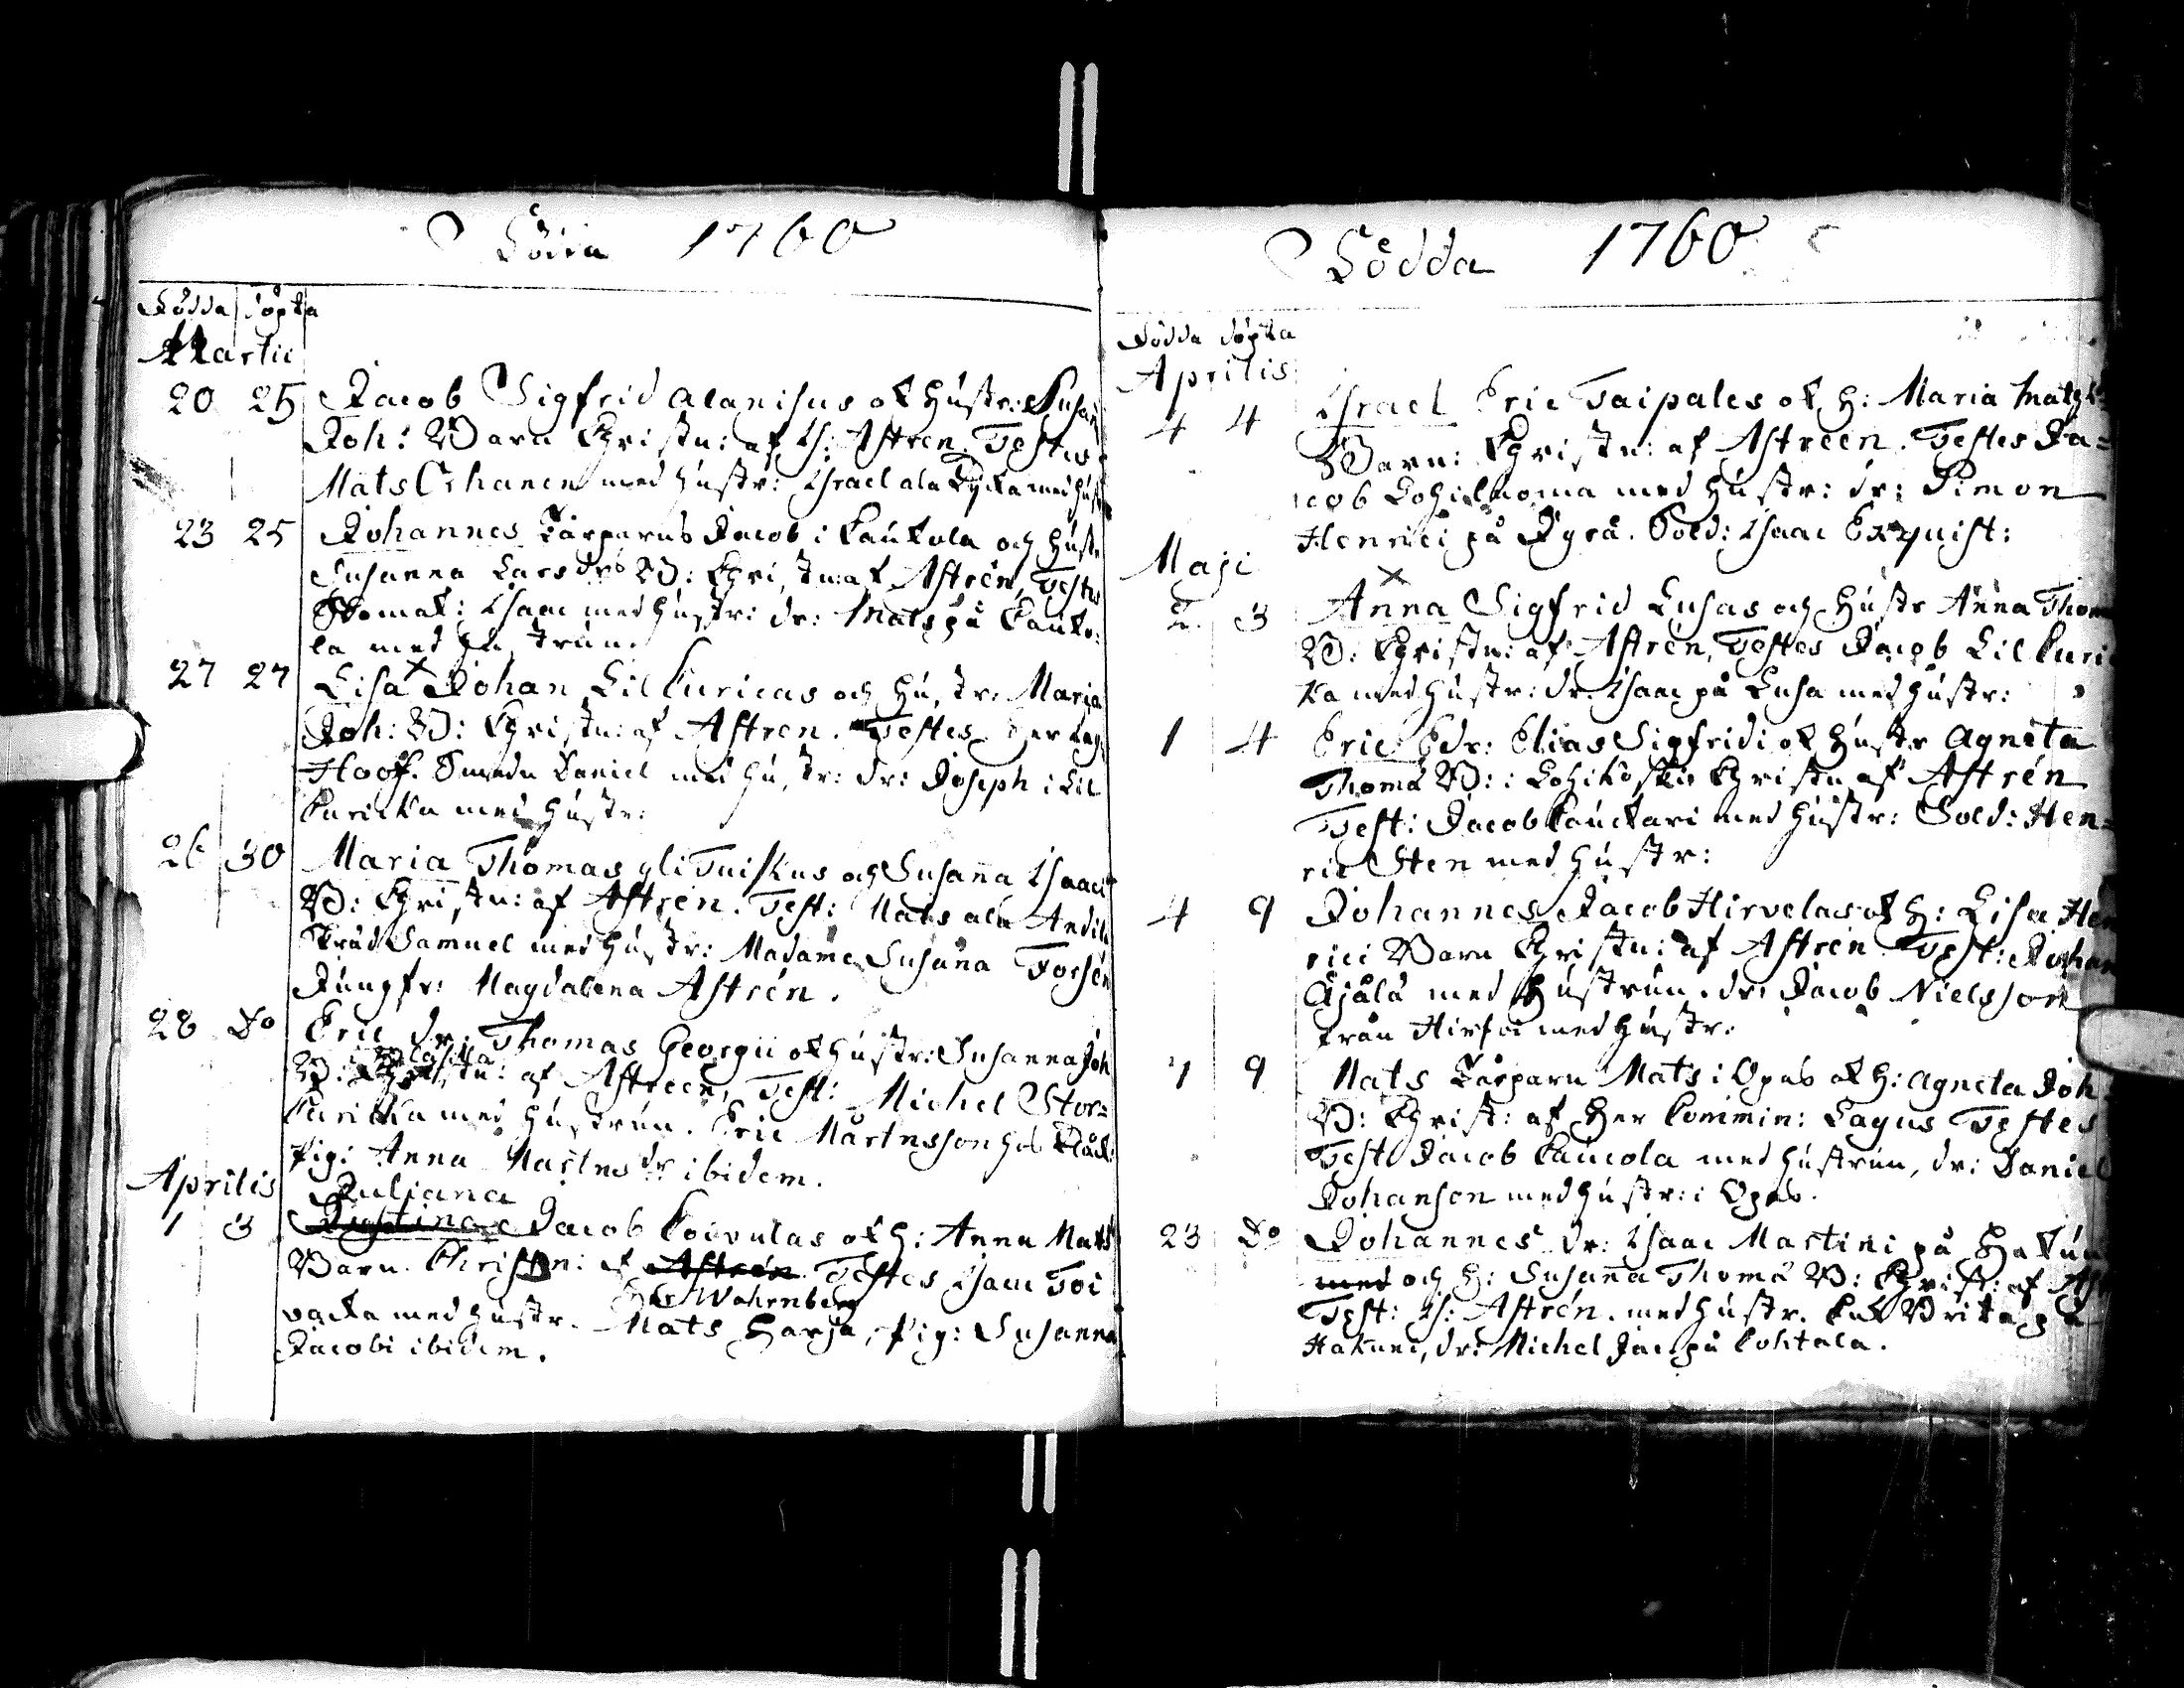 Födda 1760
Födda döpta
Martii
20 25 Jacob Sigfrid alanisus ok hustr: Susan
Joh: Barn Christn: af H: Astren. Testes
Mats Orhanen med hustr: Israel ala med hust
23 25 Johannes Torparns Jacob i Kaukola och hustr
Susanna Larsdr B: Christn: af Astrén, Testes
Isaac med hustr: dr: Mats på Kauko:
la med hustrun.
27 27 Lisa Johan Lil Kuricas och hustr: Maria
Joh: B: Christn: af Astren. Testes Her
Hoof. Smeden Daniel med hustr: dr: Joseph i Lil
Kuricka med hustr:
26 30 Maria Thomas yli Tuiskus och Susana Isaaci
B: Christn: af Astrén. Test: Mats ala
Samuel med hustr: Madame Susana Forsén
Jungfr: Magdalena Astrén.
28 Do Eric dr: Thomas Georgii ok hustr: Susanna Joh
B: Christn: af Astreen, Test: Michel Stor=
Kuricka med hustrun. Eric Mårtensson hos
Pig: Anna Martensdr ibidem.
Aprilis
Juliana
1 3 Justina Jacob Koivulas ok h: Anna Mats
Barn. Christn: af Astrén. Testes Isaac Toi
Her Wahrnberg
vacka med hustr. Mats Harja, Pig: Susanna
Jacobi ibidem.
Födda 1760
Födda döpta
Aprilis
4 4 Israel Eric Taipales ok h: Maria
Barn: Christn: af Astreen. Testes Ja=
cob med hustr: dr: Simon
Henrici på Sold: Isaac Exquist:
Maji
2. 3 Anna Sigfrid Lusas och hustr Anna Thom
B: Christn: af Astrén, Testes Jacob Lil Kuri
ka med hustr: dr. Isaac på Lusa med hustr:
1 4 Eric dr: Elias Sigfridi ok hustr Agneta
Thomæ B: i Lohikoski Christn af Astrén
Test: Jacob med hustr: Sold: Hen=
ric Sten med hustr:
4 9 Johannes Jacob Hirvelas ok h: Lisa Hen
rici Barn Christn: af Astrén Test: Johan
Äjälä med hustrun. dr: Jacob Nielsson
från Hirfoi med hustr:
7 9 Mats Torparn Mats i Opas ok h: Agneta Joh
B: Christ: af Her Commin: Lagus Testes
Test Jacob Kaucola med hustrun, dr: Daniel
Johanson med hustr: i Opas.
23 Do Johannes dr: Isaac Martini på Hakun
med och h: Susana Thomæ B: Christ: af
Test: H: Astrén. med hustr. Brita på
Hakuni, dr: Michel Jac: på Kohtala.